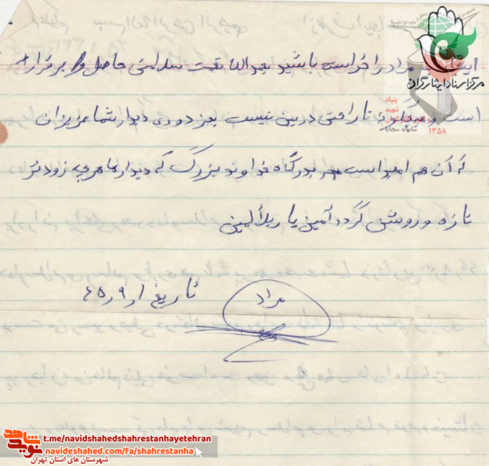 اینجا مراد را خواسته باشید بحمدالله نعمت سلامتی حاصل و برقرار
است و هیچگونه ناراحتی در بین نیست بجز دوری دیدار شما عزیزان
که آن هم امید است به درگاه خداوند بزرگ که دیدارها هر چه زودتر
تازه و روشن گردد آمین یا رب العالمین
مراد
تاریخ ۶۵/۹/۱
مرکز اسناد ایثارگران
بنیاد
شهید
۱۳۵۸
t.me/navidshahedshahrestanhayetehran
navideshahed.com/fa/shahrestanha
نوید شاهد
شهرستان های استان تهران